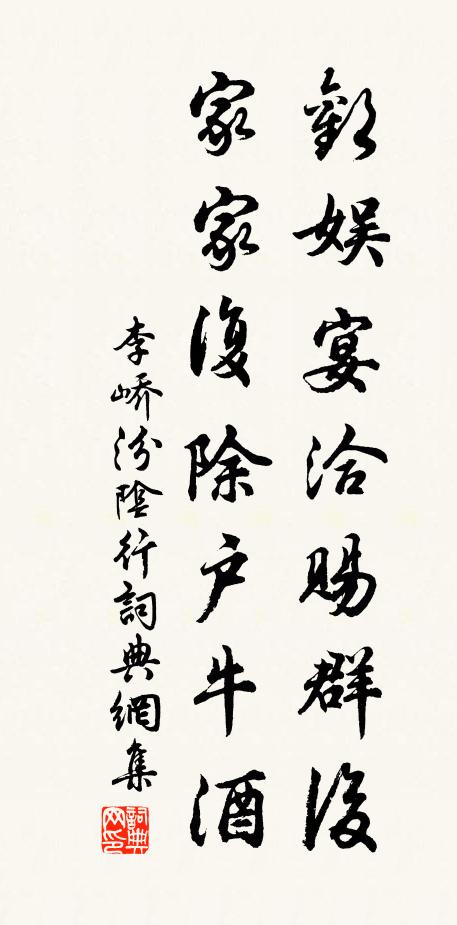 歡娛宴洽賜群後
家家復除户牛酒
李嶠汾陰行詞典網集
詞典
网印